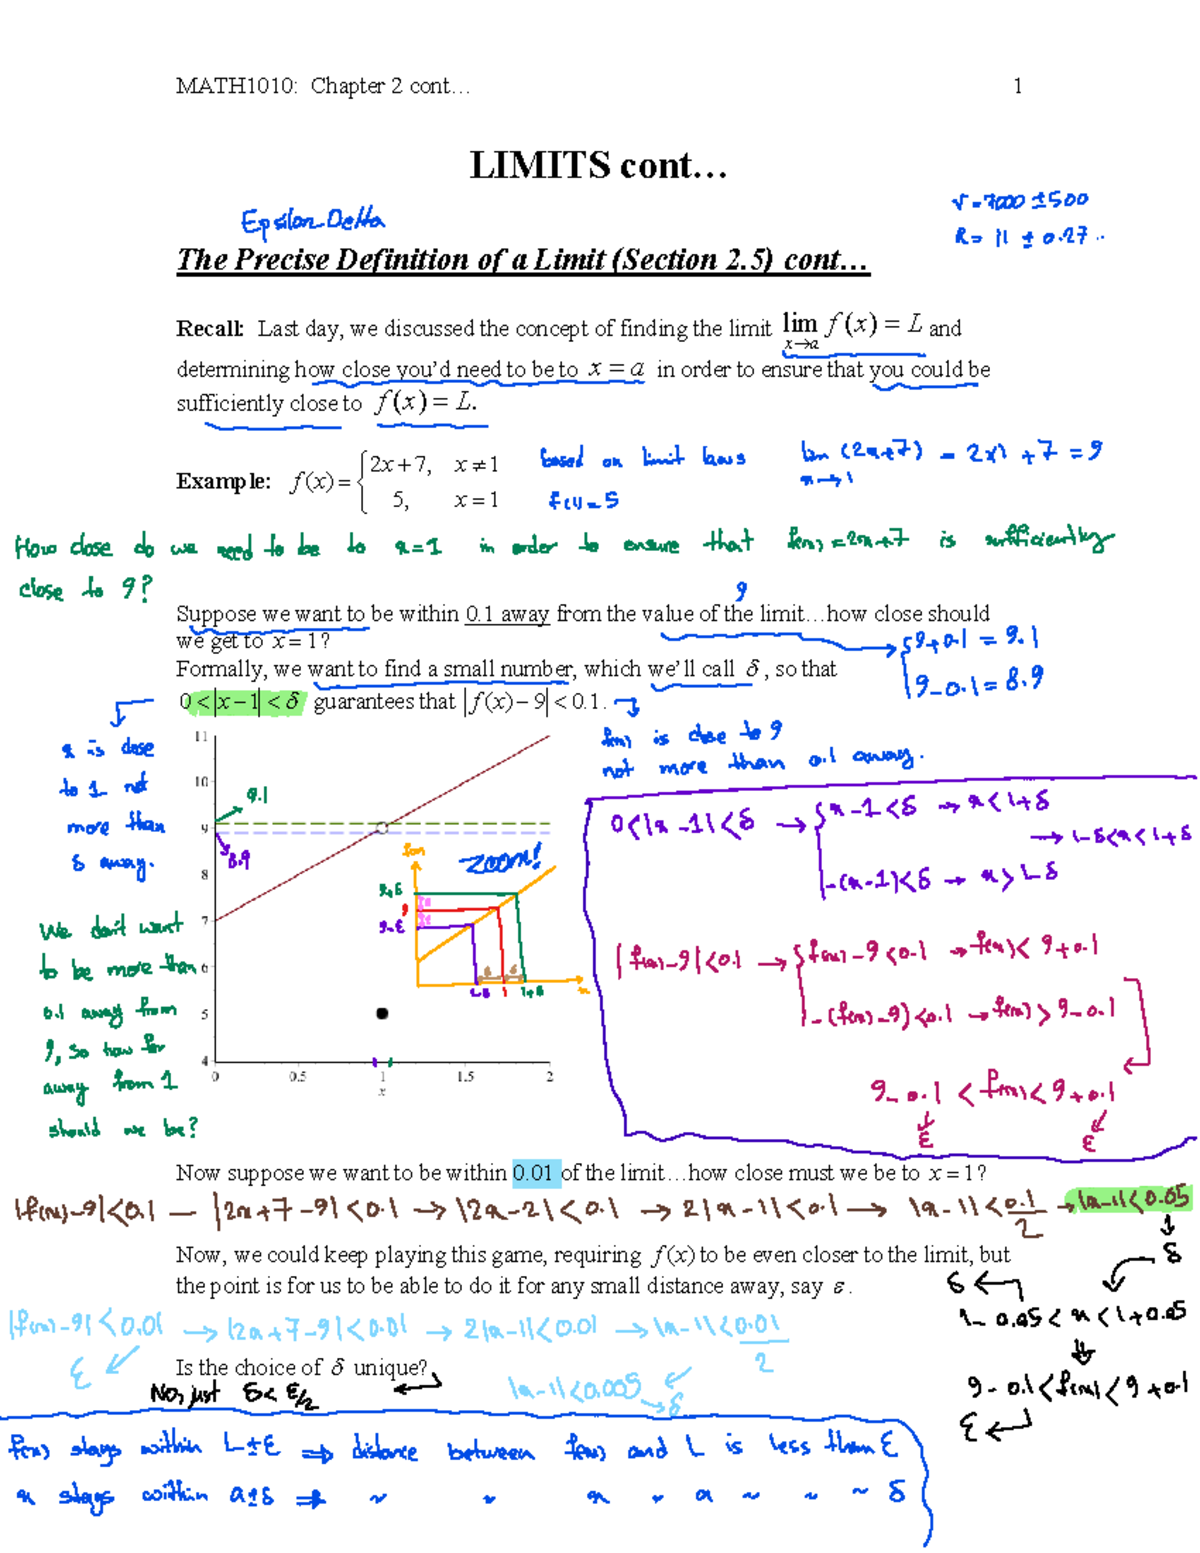 MATH1010: Chapter 2 cont… 1
LIMITS cont…
Epsilon-Delta
r = 7000 ± 500
R = 11 ± 0.27..
The Precise Definition of a Limit (Section 2.5) cont…
Recall: Last day, we discussed the concept of finding the limit lim x→a f(x) = L and
determining how close you'd need to be to x = a in order to ensure that you could be
sufficiently close to f(x) = L.
Example: f(x) = { 2x+7, x ≠ 1
5, x = 1
based on limit laws
f(1) = 5
lim (2x+7) = 2×1 + 7 = 9
x→1
How close do we need to be to x=1 in order to ensure that f(x)=2x+7 is sufficiently
close to 9?
9
Suppose we want to be within 0.1 away from the value of the limit…how close should
we get to x = 1?
9+0.1 = 9.1
9-0.1 = 8.9
Formally, we want to find a small number, which we'll call δ, so that
0 < |x − 1| < δ guarantees that |f(x) − 9| < 0.1.
x is close
to 1 not
more than
δ away.
f(x) is close to 9
not more than 0.1 away.
11
10
9
8
7
6
5
4
0 0.5 1 1.5 2
x
9.1
8.9
zoom!
f(x)
9+ε
9
9-ε
1-δ 1 1+δ
x
We don't want
to be more than
0.1 away from
9, so how far
away from 1
should we be?
0<|x-1|<δ → { x-1<δ → x<1+δ
→ 1-δ<x<1+δ
-(x-1)<δ → x>1-δ
|f(x)-9|<0.1 → { f(x)-9<0.1 → f(x)<9+0.1
-(f(x)-9)<0.1 → f(x)>9-0.1
9-0.1 < f(x) < 9+0.1
ε ε
Now suppose we want to be within 0.01 of the limit…how close must we be to x = 1?
|f(x)-9|<0.1 — |2x+7-9|<0.1 → |2x-2|<0.1 → 2|x-1|<0.1 → |x-1|<0.1/2 → |x-1|<0.05
δ
Now, we could keep playing this game, requiring f(x) to be even closer to the limit, but
the point is for us to be able to do it for any small distance away, say ε.
δ
1-0.05<x<1+0.05
|f(x)-9|<0.01 → |2x+7-9|<0.01 → 2|x-1|<0.01 → |x-1|<0.01/2
ε
Is the choice of δ unique?
No, just δ<ε/2
|x-1|<0.005
δ
9-0.1<f(x)<9+0.1
ε
f(x) stays within L±ε ⇒ distance between f(x) and L is less than ε
x stays within a±δ ⇒ ~ ~ x ~ a ~ ~ ~ δ